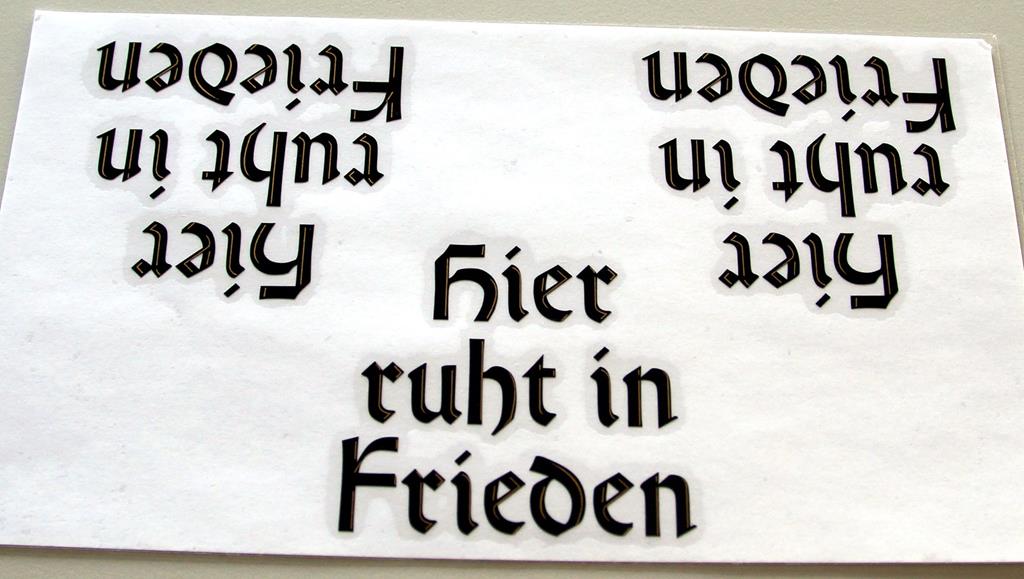 Hier
ruht in
Frieden
Hier
ruht in
Frieden
Hier
ruht in
Frieden